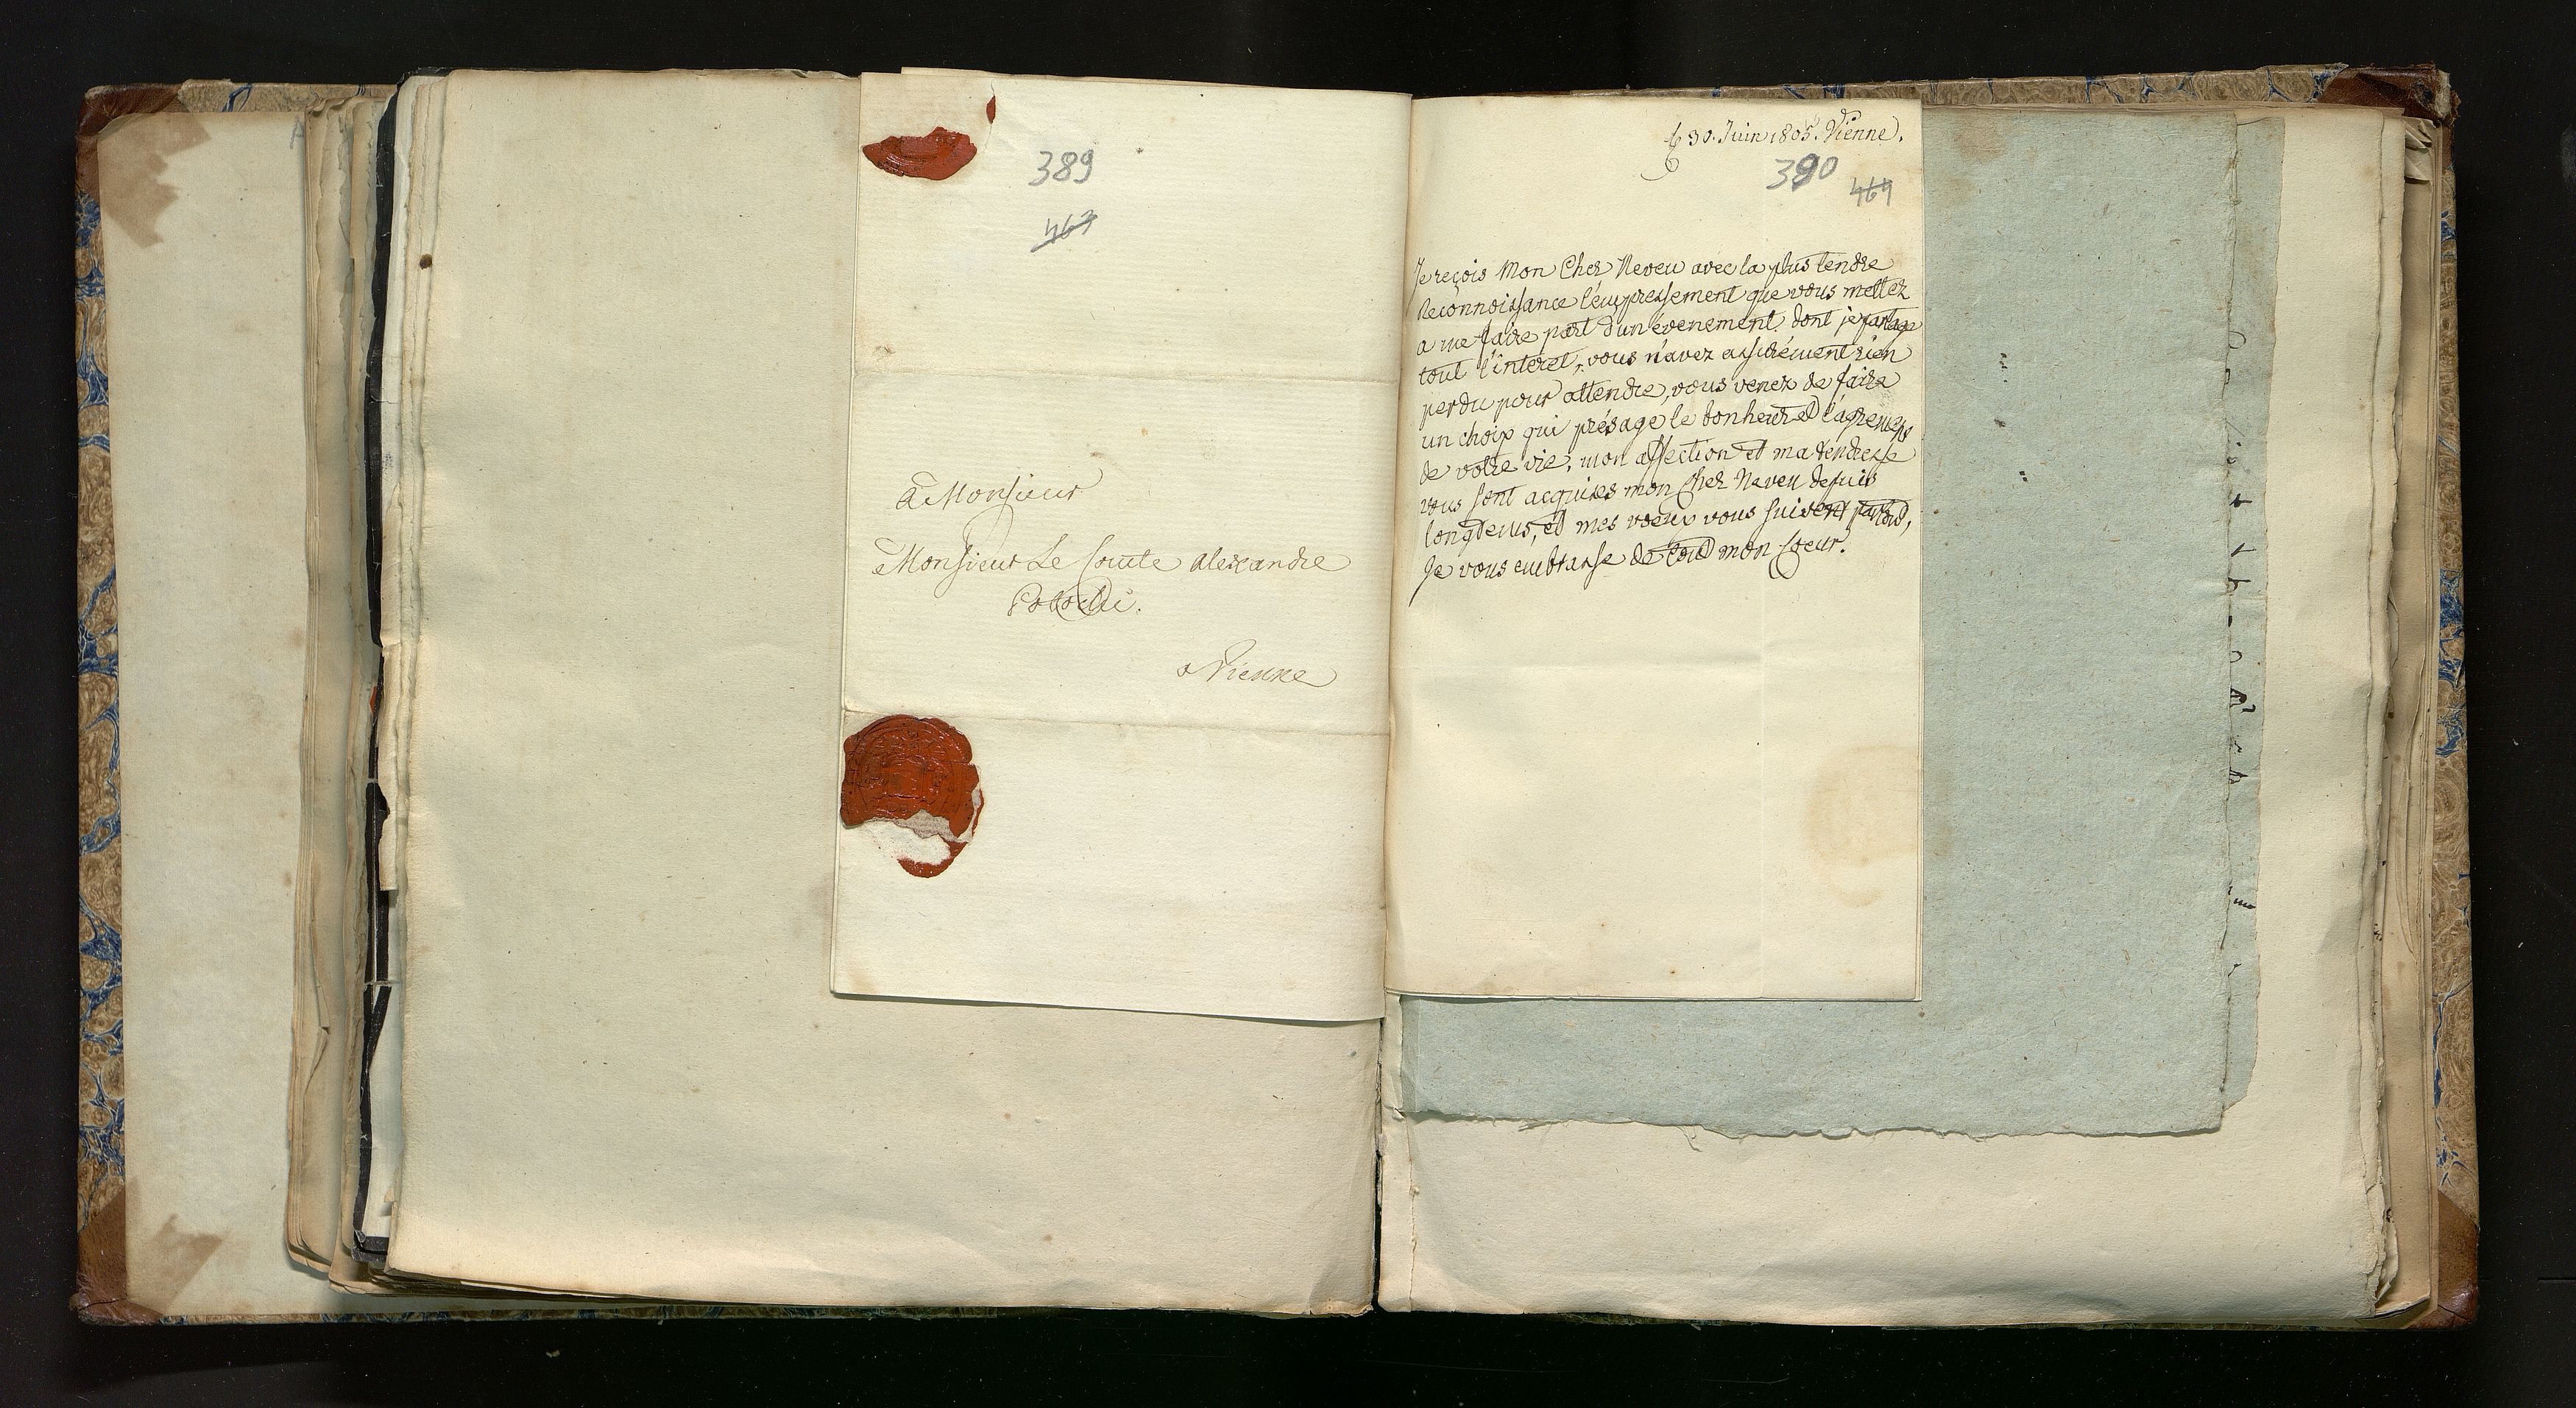 389
467
à Monsieur
Monsieur Le Comte Alexandre
Potocki.
a Vienne
le 30. Juin 1805. Vienne.
390
464
Je reçois Mon Cher Neveu avec la plus tendre
Reconnoissance l'empressement que vous mettez
a me faire part d'un évenement, dont je partage
tout l'interet, vous n'avez assurément rien
perdu pour attendre, vous venez de faire
un choix qui présage le bonheur et l'agrement
de votre vie, mon affection et ma tendresse
vous sont acquises mon Cher Neveu depuis
longtems, et mes voeux vous suivent partout,
Je vous embrasse de tout mon Coeur.